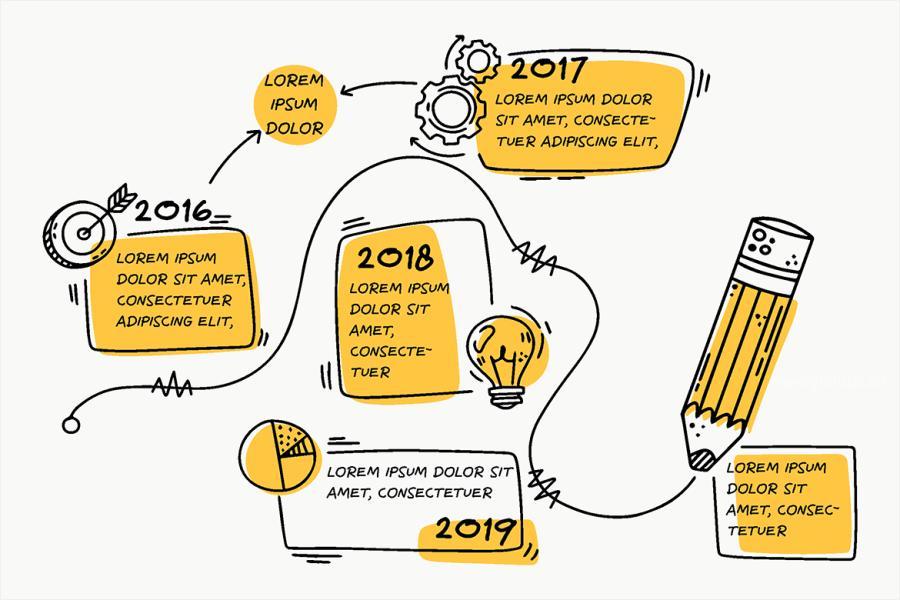 LOREM
IPSUM
DOLOR
2017
LOREM IPSUM DOLOR
SIT AMET, CONSECTE-
TUER ADIPISCING ELIT,
2016
LOREM IPSUM
DOLOR SIT AMET,
CONSECTETUER
ADIPISCING ELIT,
2018
LOREM IPSUM
DOLOR SIT
AMET,
CONSECTE-
TUER
LOREM IPSUM DOLOR SIT
AMET, CONSECTETUER
2019
LOREM IPSUM
DOLOR SIT
AMET, CONSEC-
TETUER